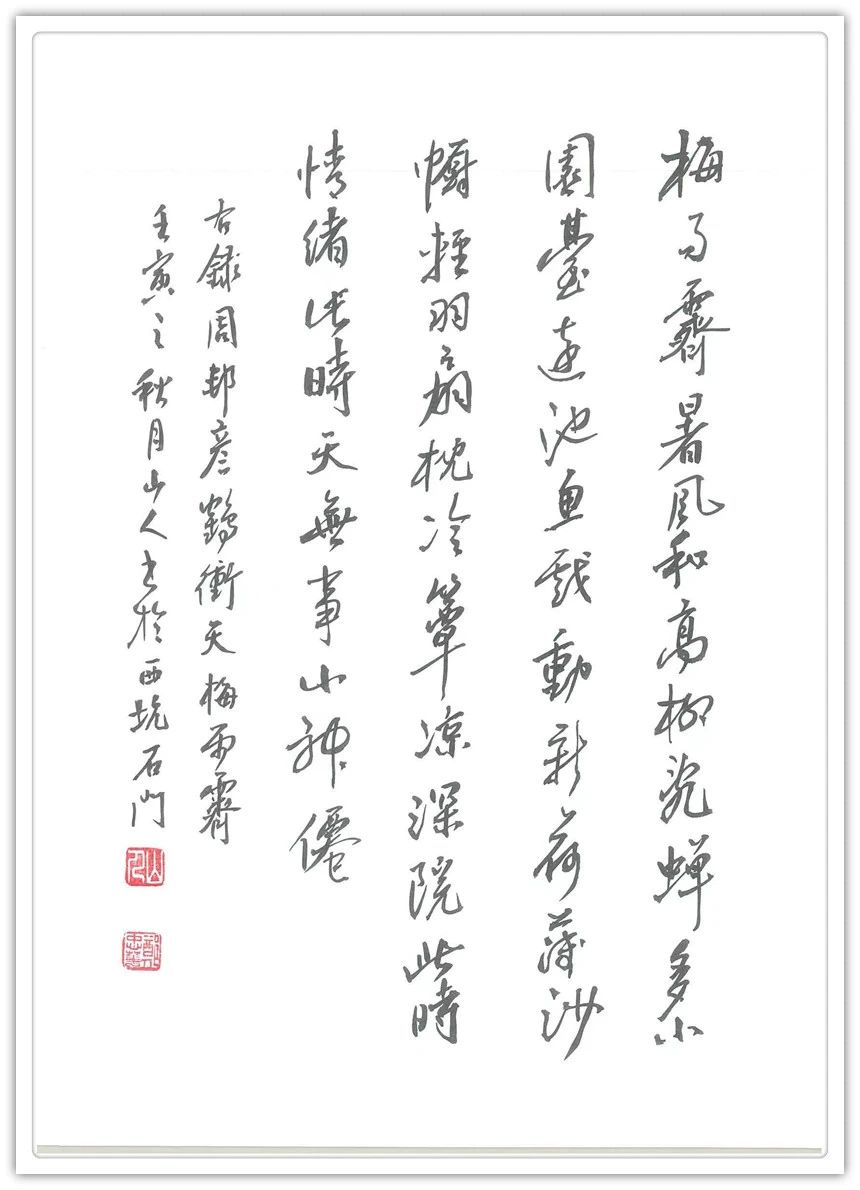 梅雨霽暑風和高柳亂蟬多小
園臺遠池魚戲動新荷薄沙
幮輕羽扇枕冷簟凉深院此時
情緒此時天無事小神僊
右錄周邦彦鶴衝天梅雨霽
壬寅之秋月山人書於西坑石門
山人